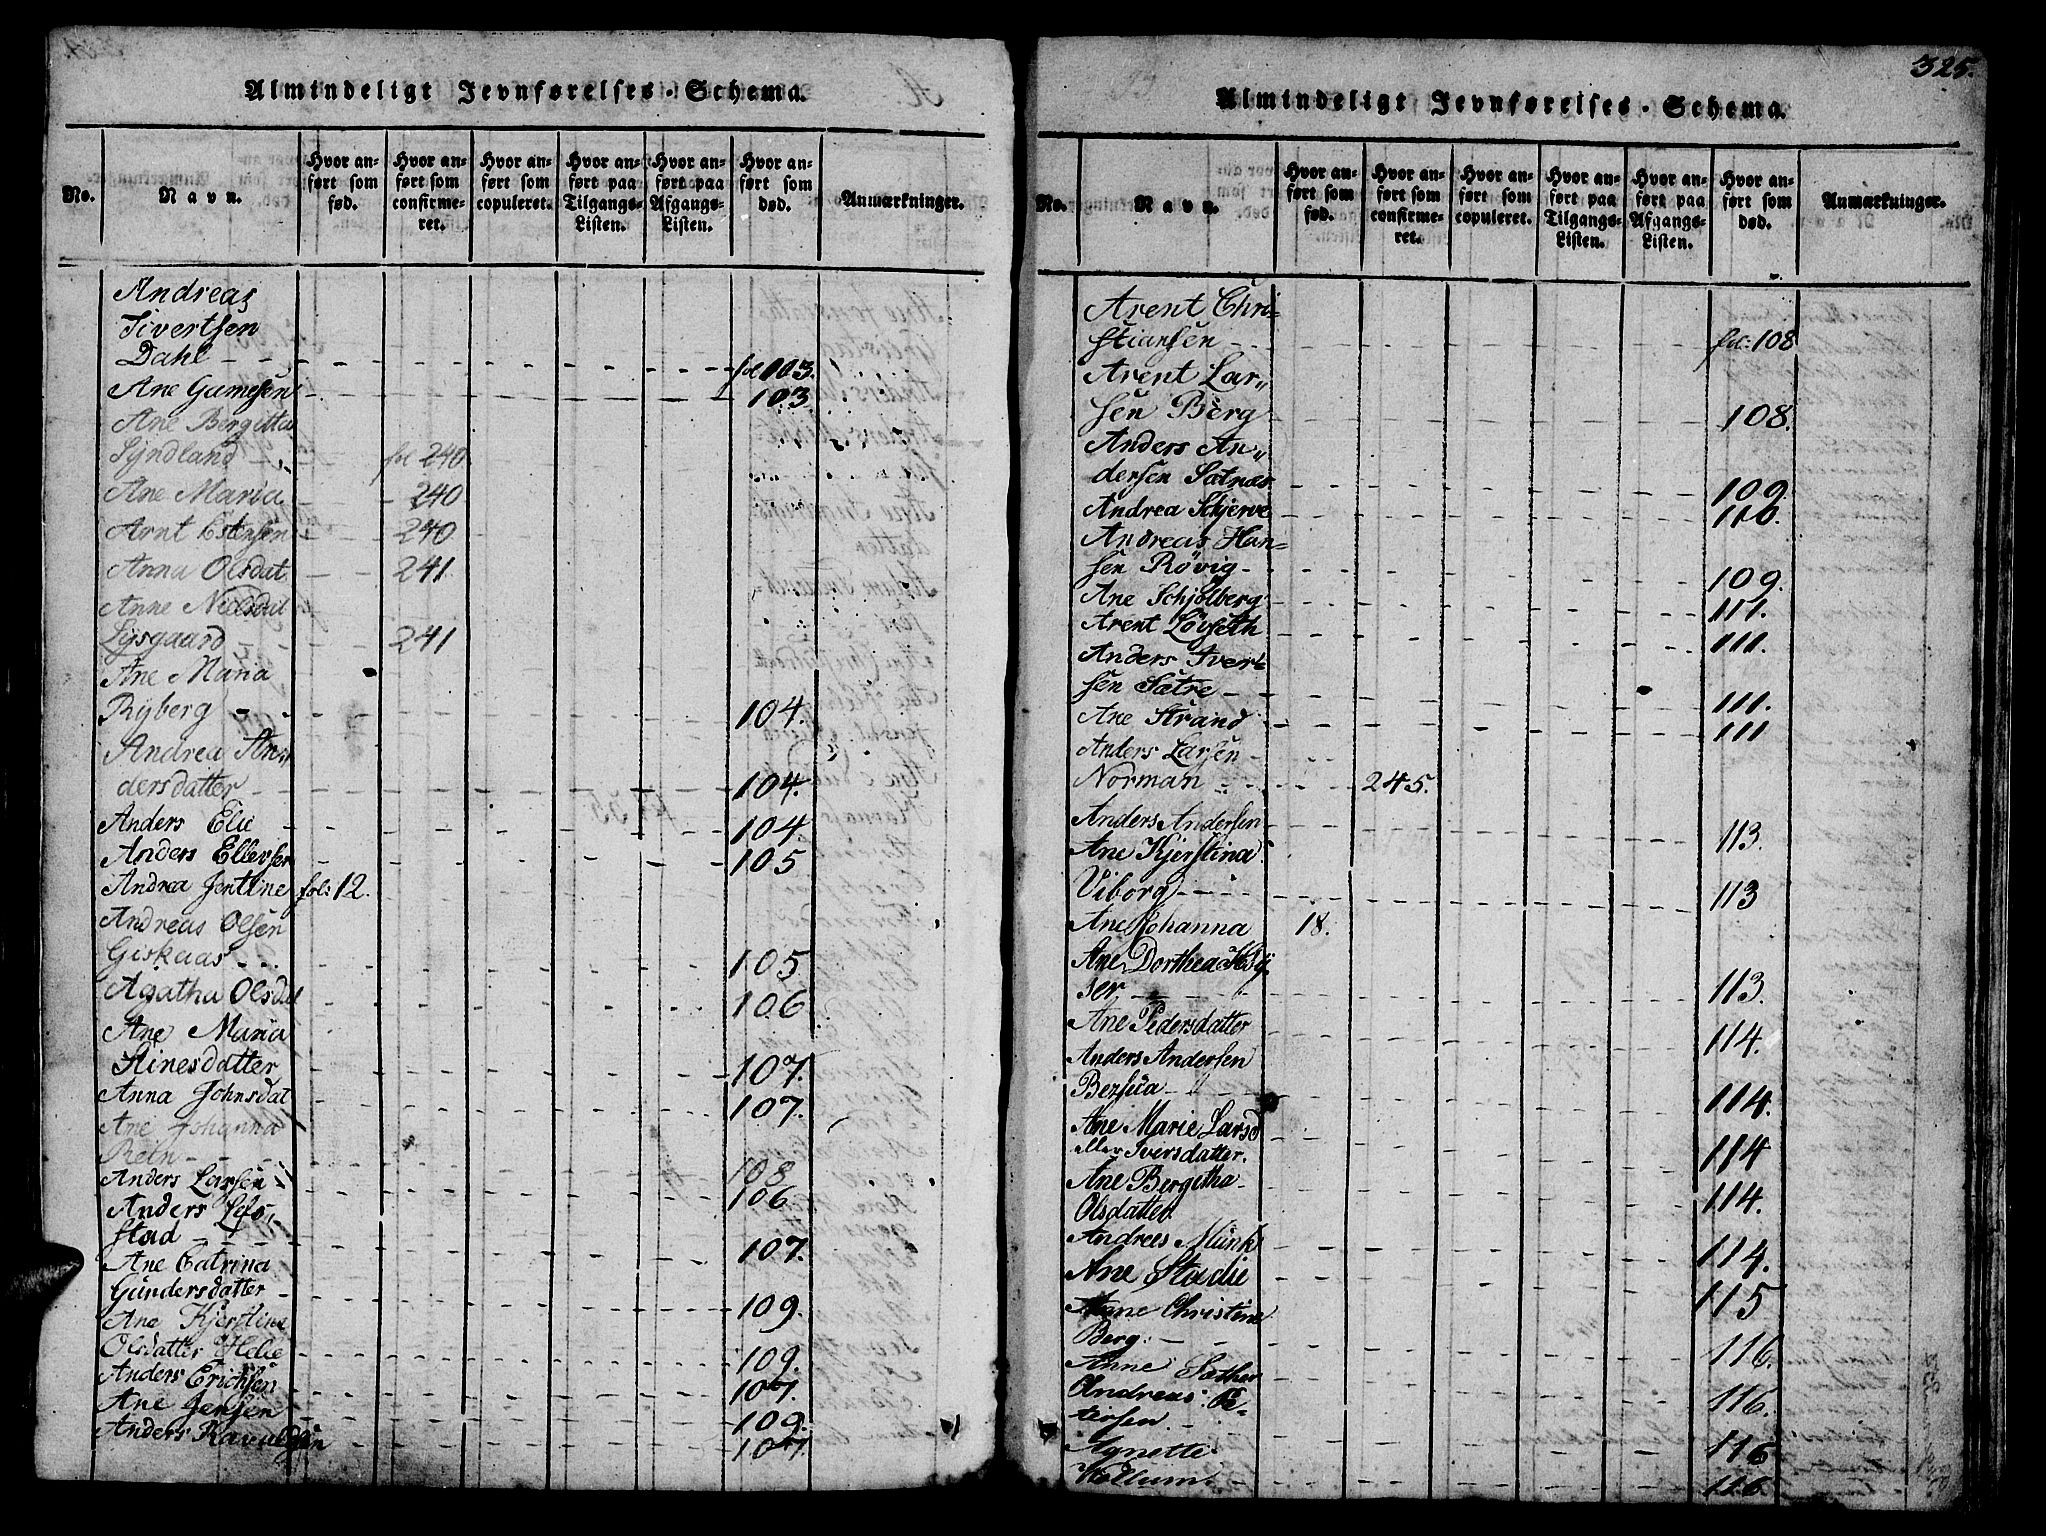 Almindeligt Jevnførelses-Schema.
No.
Navn.
Hvor anført som fød.
Hvor anført som confirmeret.
Hvor anført som copuleret.
Hvor anført paa Tilgangs-Listen.
Hvor anført paa Afgangs-Listen.
Hvor anført som død.
Anmærkninger.
Andreas
Sivertsen
Dahl fol 103.
Ane Gumesen 103
Ane Bergitta
Syndland fol 240
Ane Maria 240
Arnt Estensen 240
Anna Olsdat 241
Anne Nielsdat
Lysgaard 241
Ane Maria
Ryberg 104.
Andrea An„
dersdatter 104.
Anders Elie 104.
Anders Ellevsen 105
Andrea Jentine fol: 12.
Andreas Olsen
Giskaas 105
Agatha Olsdat 106
Ane Maria
Stinesdatter 107.
Anna Johnsdat 107.
Ane Johanna
Rein 108
Anders Larsen 106
Anders Lefs„
stad 107.
Ane Catrina
Gundersdatter 109.
Ane Kjerstine
Olsdatter Helie 109.
Anders Erichsen 107.
Ane Jensen 109.
Anders Ravaldsen 107.
325.
Almindeligt Jevnførelses-Schema.
No.
Navn.
Hvor anført som fød.
Hvor anført som confirmeret.
Hvor anført som copuleret.
Hvor anført paa Tilgangs-Listen.
Hvor anført paa Afgangs-Listen.
Hvor anført som død.
Anmærkninger.
Arent Chri-
stiansen fol: 108
Arent Lar„
sen Berg 108.
Anders An„
dersen Sætnæs 109.
Andrea Schjerve 110.
Andreas Han=
sen Røvig 109.
Ane Schjølberg 111.
Arent Løvseth 111.
Anders Iver-
sen Sætre 111.
Ane Strand 111
Anders Larsen
Norman 245.
Anders Andersen 113.
Ane Kjerstina
Viborg 113
Ane Johanna 18.
Ane Dorthea
ser 113.
Ane Pedersdatter 114.
Anders Andersen
114.
Ane Marie Larsd
eller Iversdatter. 114
Ane Bergitha
Olsdatter 114.
Andreas Munk 114.
Ane Stadie 115
Anne Christine
Berg: 116.
Anne Sæther
Andreas: Pe- 116.
tersen
Agnette 116
Hallum 116.